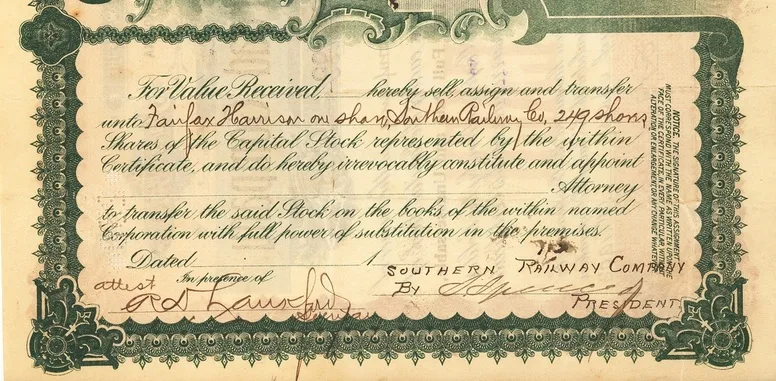 For Value Received, hereby sell, assign and transfer
unto Fairfax Harrison one share, Southern Railway Co, 249 shares
Shares of the Capital Stock represented by the within
Certificate, and do hereby irrevocably constitute and appoint
Attorney
to transfer the said Stock on the books of the within named
Corporation with full power of substitution in the premises.
Dated 1
In presence of
attest
SOUTHERN RAILWAY COMPANY
BY S Spencer
PRESIDENT
NOTICE. THE SIGNATURE OF THIS ASSIGNMENT
MUST CORRESPOND WITH THE NAME AS WRITTEN UPON THE
FACE OF THE CERTIFICATE, IN EVERY PARTICULAR, WITHOUT
ALTERATION OR ENLARGEMENT, OR ANY CHANGE WHATEVER